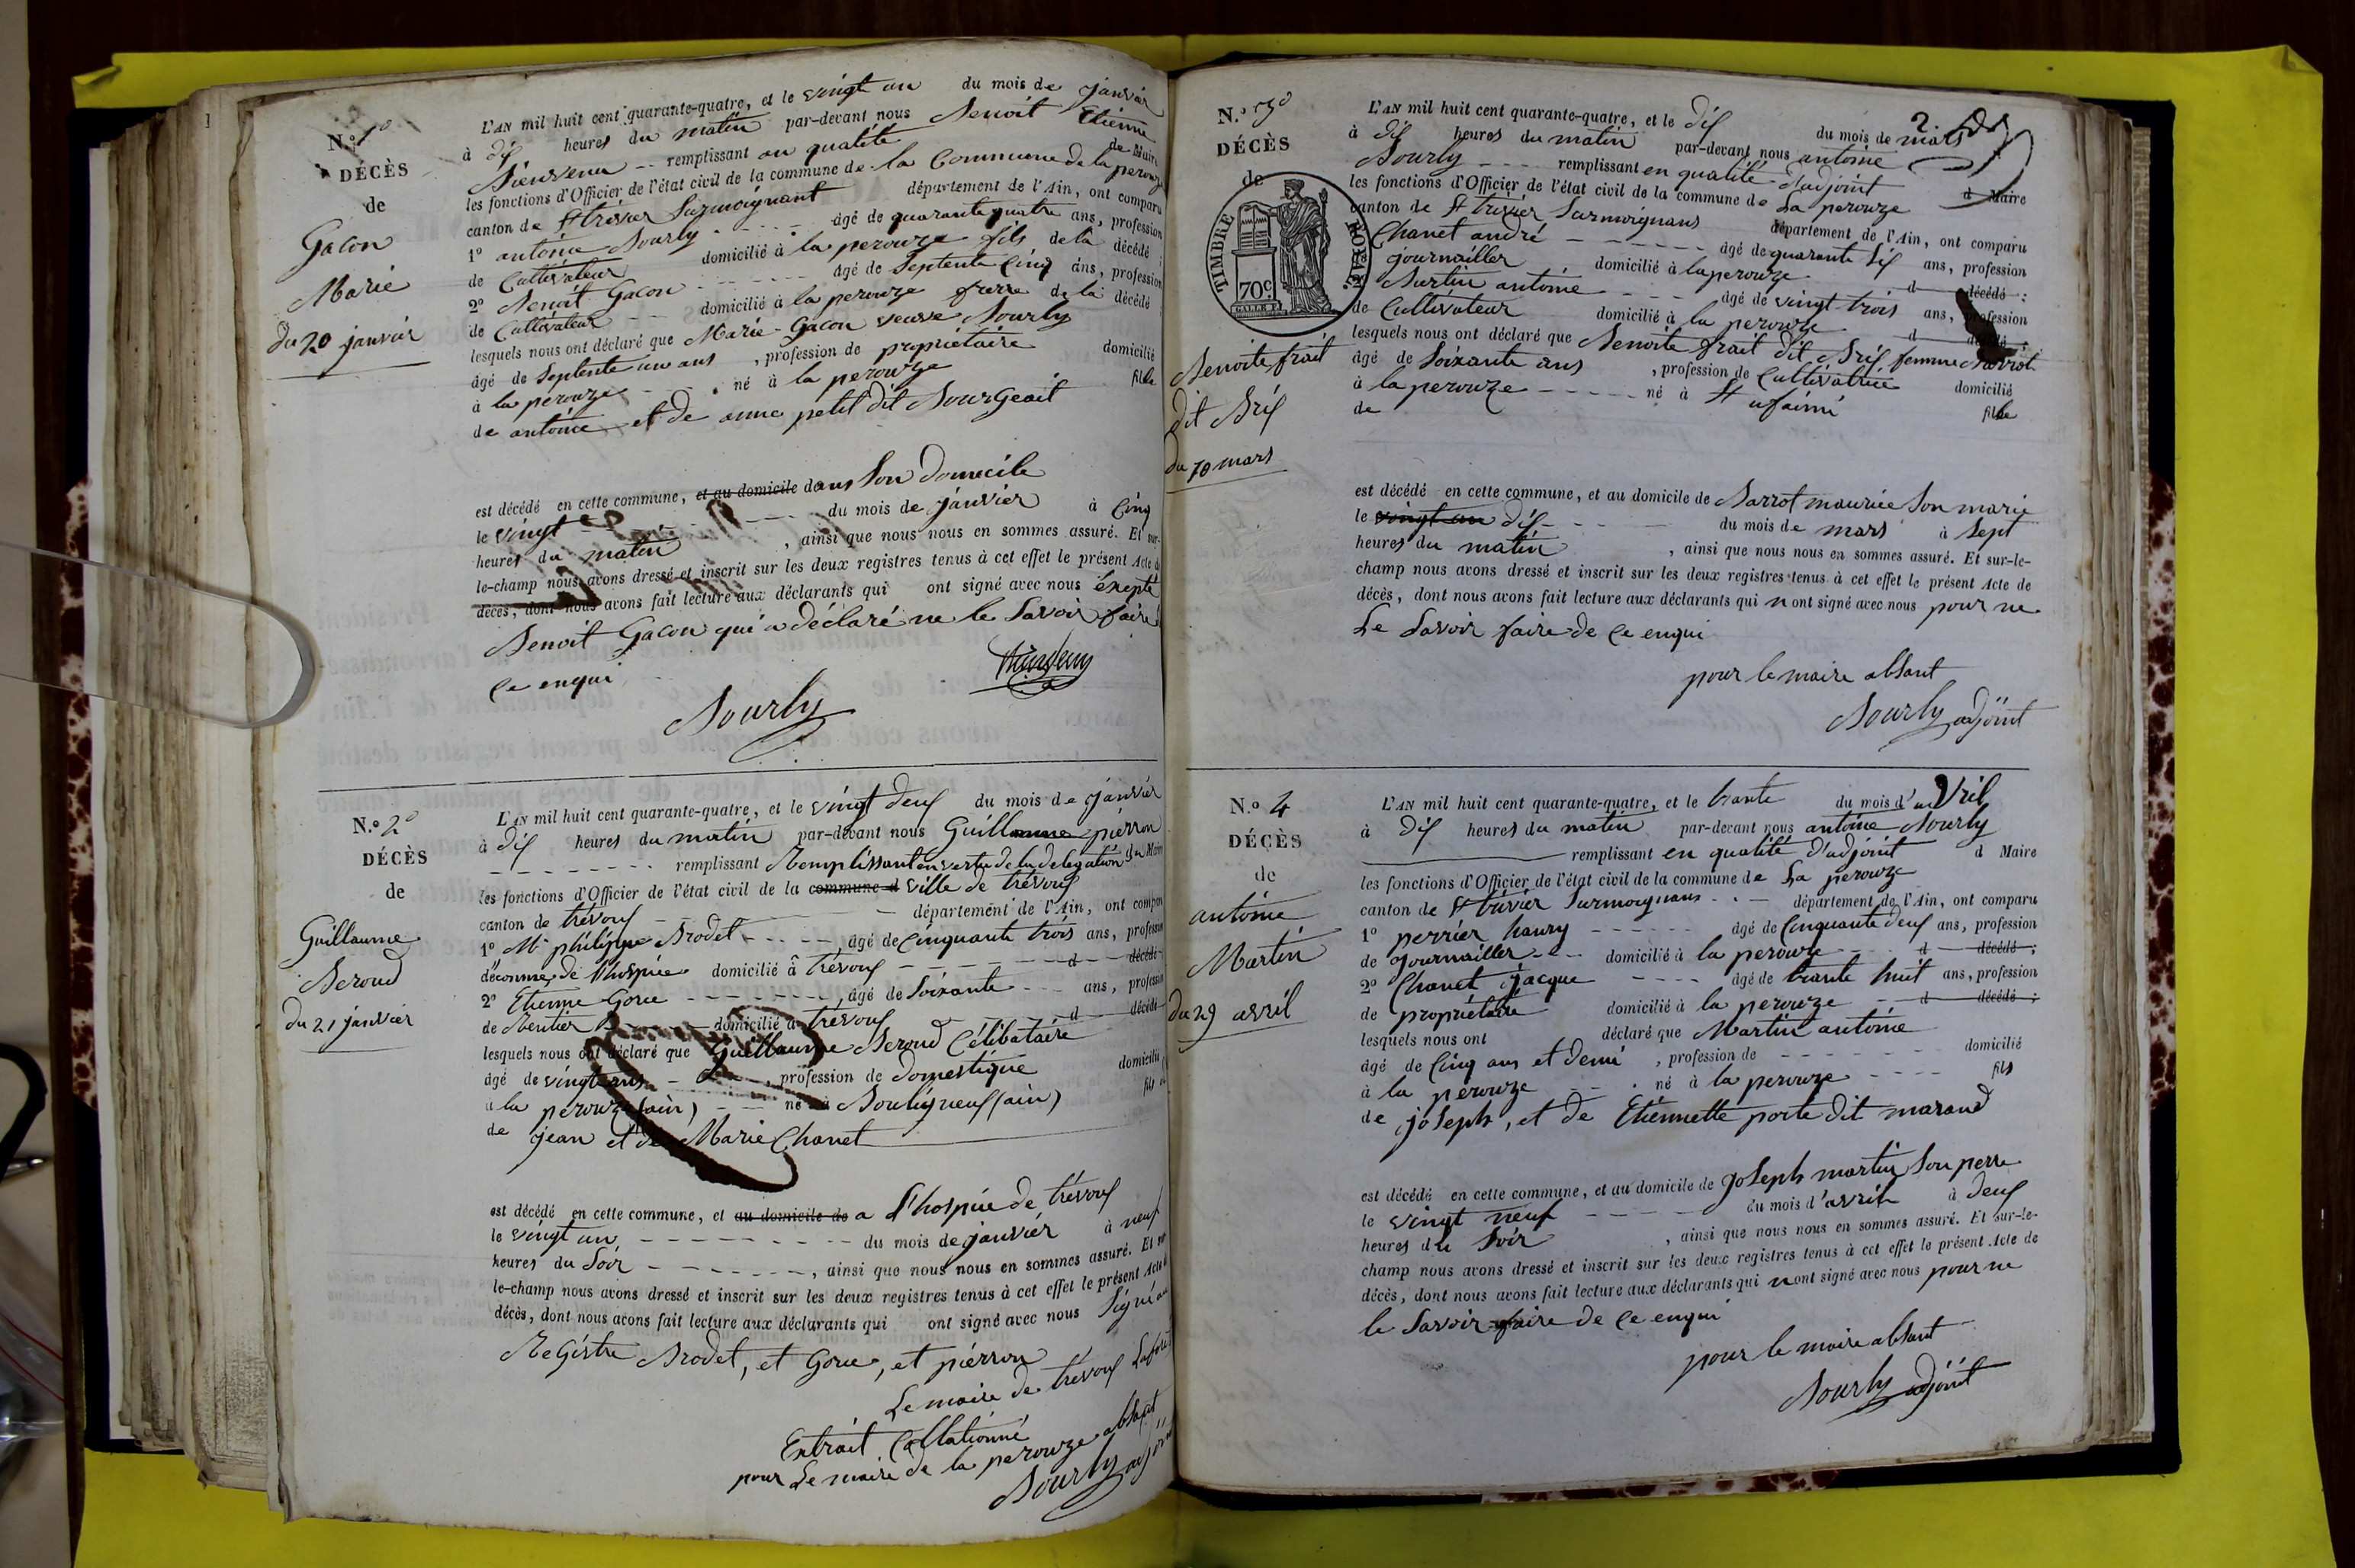 N.° 1°
DÉCÈS
de
Gacon
Marie
du 20 janvier
L'AN mil huit cent quarante-quatre, et le vingt un du mois de janvier
à dix heures du matin par-devant nous Benoit Etienne
Bienvenu -- remplissant en qualité de Maire
les fonctions d'Officier de l'état civil de la commune de la Commune de la perouze
canton de St trivier Surmoignant département de l'Ain, ont comparu
1° antoine Bourly - - - - âgé de quarante quatre ans, profession
de Cultivateur domicilié à la perouze fils de la décédé ;
2° Benoit Gacon - - - - - âgé de Septente Cinq ans, profession
de Cultivateur - - domicilié à la perouze frere de la décédé
lesquels nous ont déclaré que Marie Gacon veuve Bourly
âgé de Septente un ans , profession de propriétaire domicilié
à la perouze - - - . né à la perouze fille
de antoine et de anne petit dit Bourgeait
est décédé en cette commune, et au domicile dans Son domicile
le vingt - - - du mois de janvier à Cinq
heures du matin , ainsi que nous nous en sommes assuré. Et sur-
le-champ nous avons dressé et inscrit sur les deux registres tenus à cet effet le présent Acte de
décès, dont nous avons fait lecture aux déclarants qui ont signé avec nous éxepté
Benoit Gacon qui a déclaré ne le Savoir faire
Ce enqui
Bourly
N.° 2°
DÉCÈS
de
Guillaume
Beroud
du 21 janvier
L'AN mil huit cent quarante-quatre, et le vingt deux du mois de janvier
à dix heures du matin par-devant nous Guillaume pierron
- - - - - - remplissant Remplissant en vertu de la delegation du Maire
les fonctions d'Officier de l'état civil de la commune d ville de trévoux
canton de trévoux - - - département de l'Ain, ont comparu
1° Mr philippe Brodet - - - - , âgé de Cinquante trois ans, profession
déconome de l'hospice domicilié à trévoux - - - - d décédé
2° Etienne Gorce - - - - - - , âgé de Soixante - - - ans, profession
de Rentier - - domicilié à trévoux - - - d décédé
lesquels nous ont déclaré que Guillaume Beroud Célibataire
âgé de vingt ans - - , profession de domestique domicilié
à la perouze (ain) - - né à Bouligneux (ain) fils
de jean et de Marie Chanet
est décédé en cette commune, et au domicile de a l'hospice de trévoux
le vingt un - - - - - - - - du mois de janvier à neuf
heures du Soir - - - - - - - , ainsi que nous nous en sommes assuré. Et sur
le-champ nous avons dressé et inscrit sur les deux registres tenus à cet effet le présent Acte de
décès, dont nous avons fait lecture aux déclarants qui ont signé avec nous Signé au
Registre Brodet, et Gorce, et pierron
Le maire de trévoux
Extrait Collationné
pour Le maire de la perouze absent
Bourly adjoint
2
N.° 3°
DÉCÈS
de
TIMBRE ROYAL
70c
Benoite frait
dit Brix
du 10 mars
L'AN mil huit cent quarante-quatre, et le dix du mois de mars
à dix heures du matin par-devant nous antoine
Bourly - - - remplissant en qualité d'adjoint d Maire
les fonctions d'Officier de l'état civil de la commune de La perouze
canton de St trivier Surmoignans département de l'Ain, ont comparu
Chanet andré - - - - - - âgé de quarante Six ans, profession
journailler domicilié à la perouze d décédé ;
Burtin antoine - - - âgé de vingt trois ans, profession
de Cultivateur domicilié à la perouze d décédé ;
lesquels nous ont déclaré que Benoite frait dit Brix femme Barrot
âgé de Soixante ans , profession de Cultivatrice domicilié
à la perouze - - - - - né à St ufaimi fille
de
est décédé en cette commune, et au domicile de Barrot maurice Son marie
le vingt un dix - - - - du mois de mars à Sept
heures du matin , ainsi que nous nous en sommes assuré. Et sur-le-
champ nous avons dressé et inscrit sur les deux registres tenus à cet effet le présent Acte de
décès, dont nous avons fait lecture aux déclarants qui n ont signé avec nous pour ne
Le Savoir faire de Ce enqui
pour le maire absant
Bourly adjoint
N.° 4
DÉCÈS
de
antoine
Martin
du 29 avril
L'AN mil huit cent quarante-quatre, et le trante du mois d'avril
à dix heures du matin par-devant nous antoine Bourly
remplissant en qualité d'adjoint d Maire
les fonctions d'Officier de l'état civil de la commune de La perouze
canton de St trivier Surmoignans - - - département de l'Ain, ont comparu
1° perrier hanry - - - - - - âgé de Cinquante deux ans, profession
de journailler - - - domicilié à la perouze d décédé ;
2° Chanet jacque - - - - âgé de trante huit ans, profession
de propriétaire domicilié à la perouze - d décédé ;
lesquels nous ont déclaré que Martin antoine
âgé de Cinq ans et demi , profession de - - - - - - - domicilié
à la perouze - - - . né à la perouze - - - - fils
de joSeph, et de Etiennette porte dit marand
est décédé en cette commune, et au domicile de joSeph martin Son perre
le vingt neuf - - - - - du mois d'avril à deux
heures du Soir , ainsi que nous nous en sommes assuré. Et sur-le-
champ nous avons dressé et inscrit sur les deux registres tenus à cet effet le présent Acte de
décès, dont nous avons fait lecture aux déclarants qui n ont signé avec nous pour ne
le Savoir faire de Ce enqui
pour le maire absant
Bourly adjoint